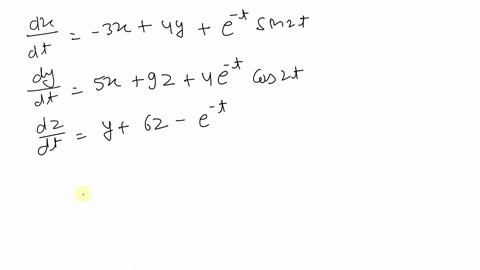 dx/dt = -3x + 4y + e^-t sin2t
dy/dt = 5x + 9z + 4e^-t cos2t
dz/dt = y + 6z - e^-t